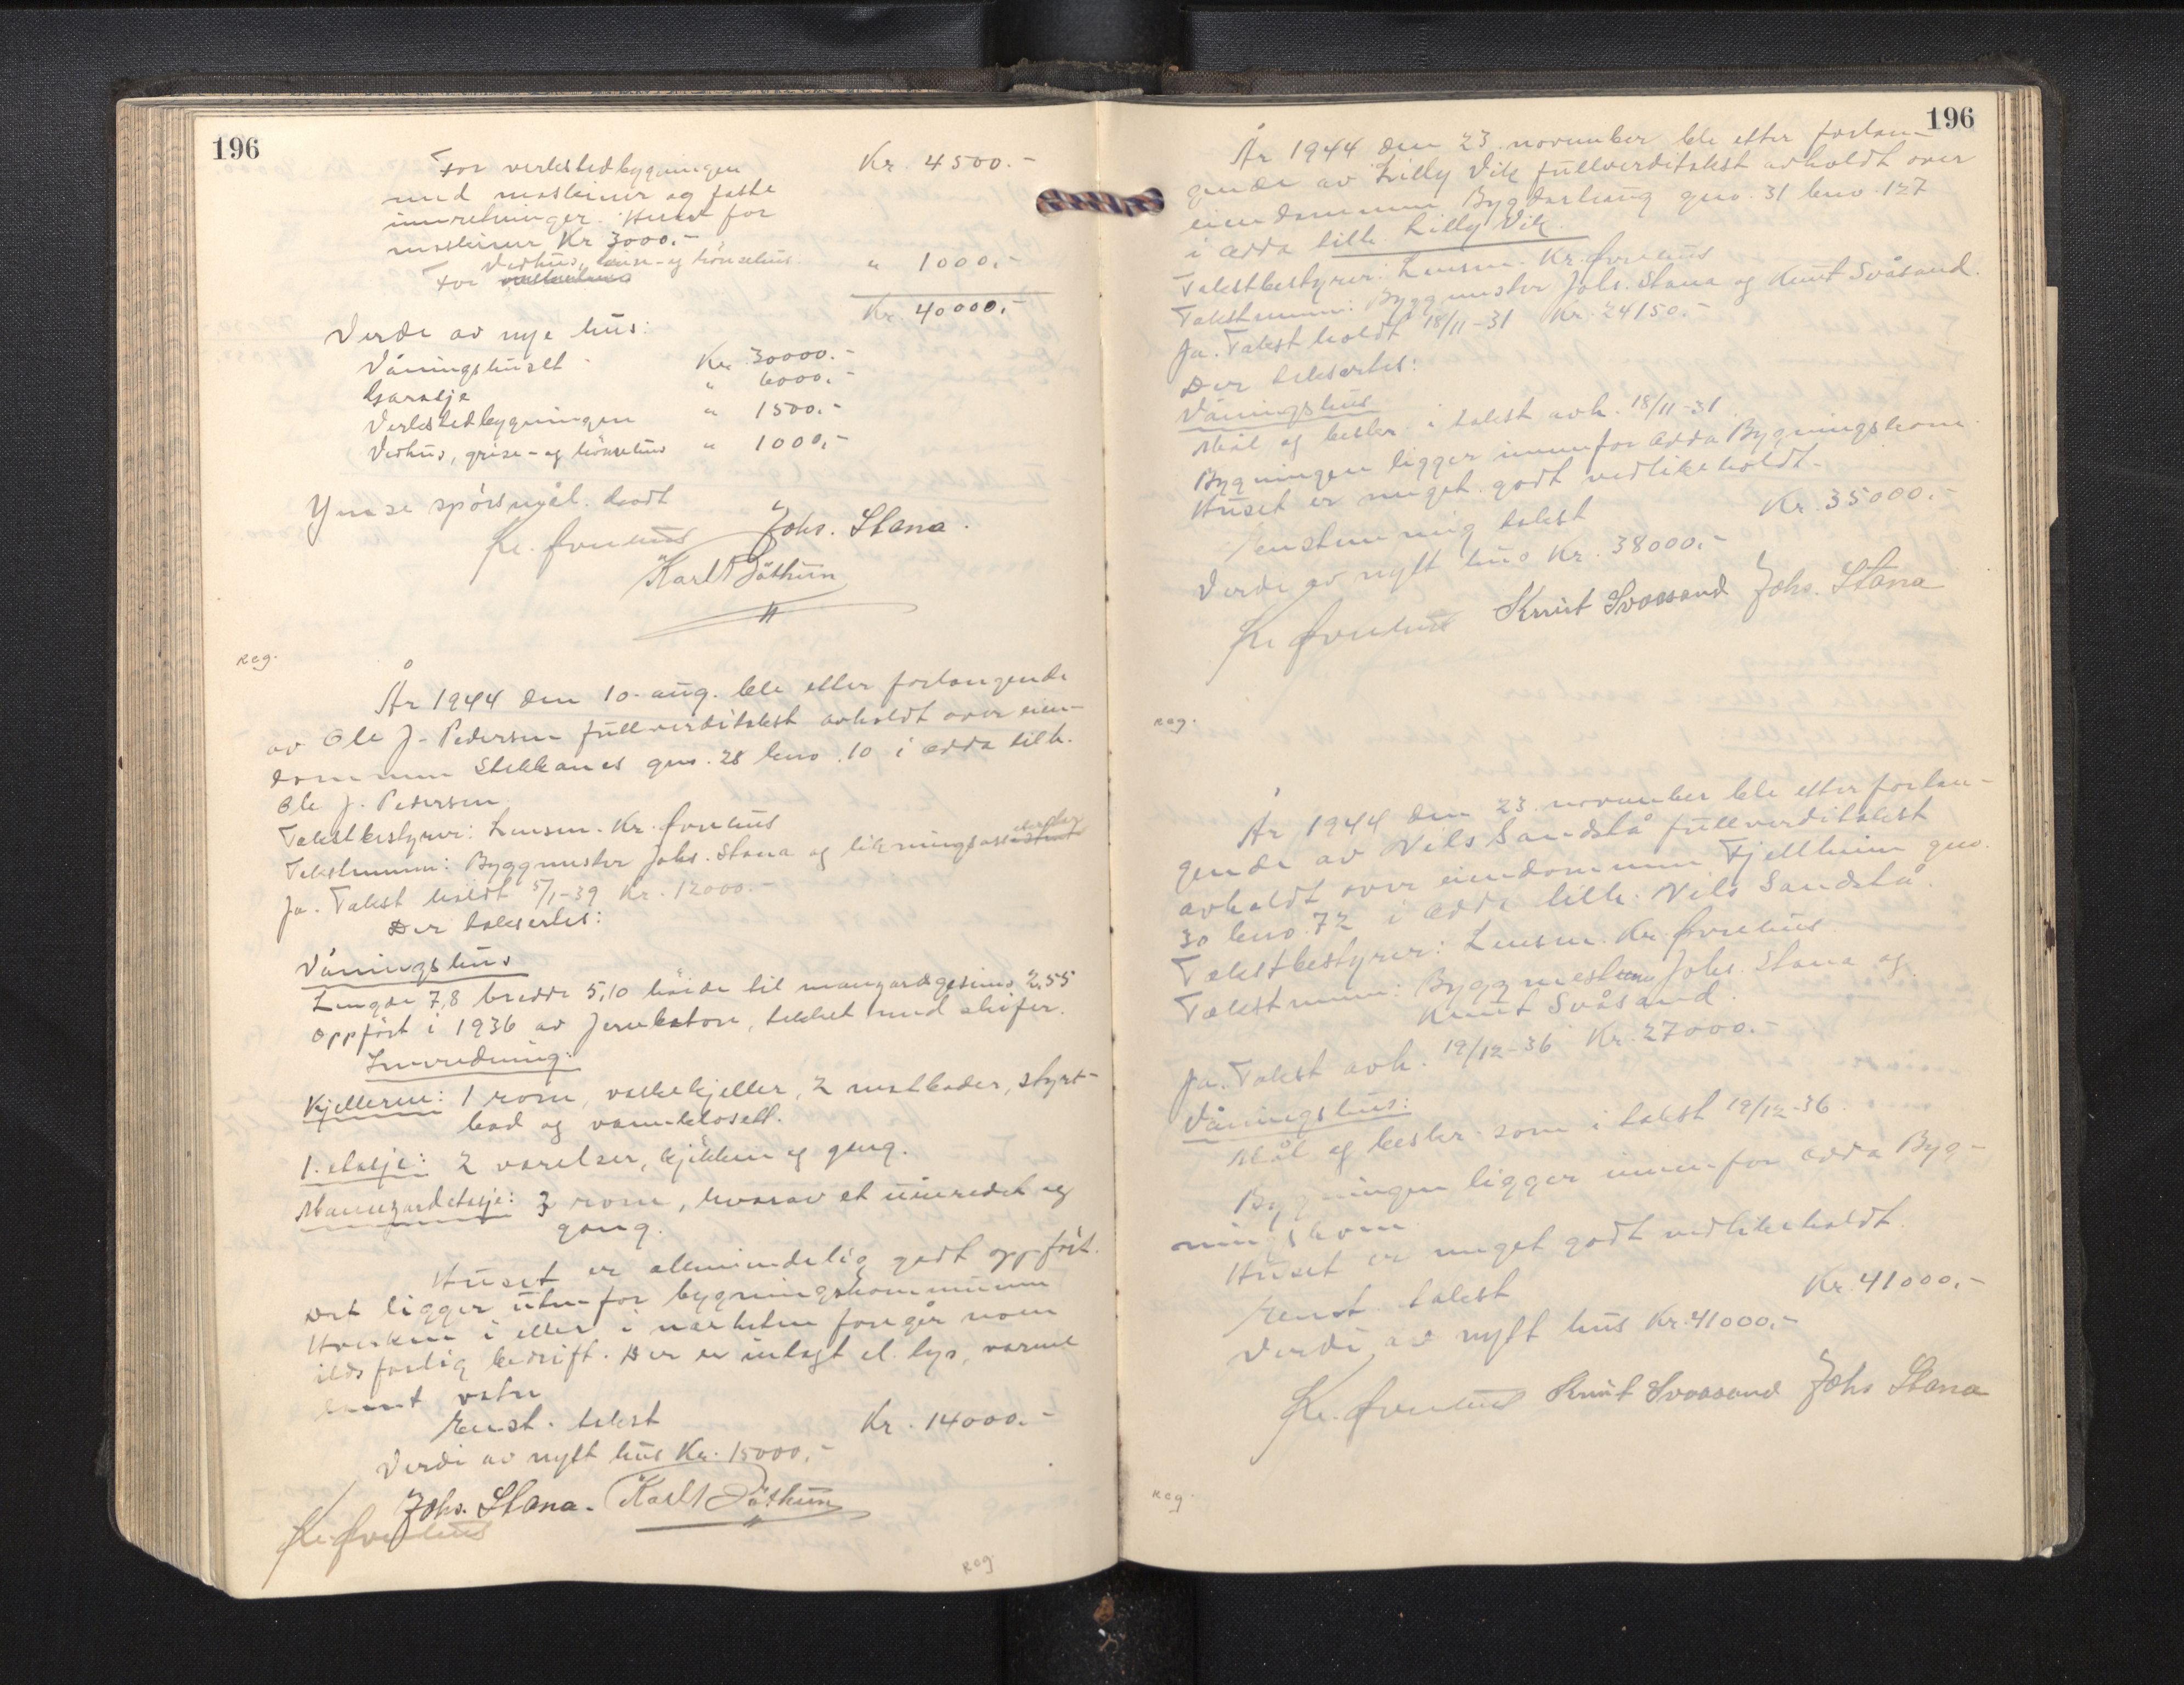 196
For verkstedbygningen Kr. 4500.-
med maskiner og faste
innretninger. Herav for
maskiner Kr 3000.-
Vedhus, grise- og hönsehus
For " 1000.-
Kr. 40000.-
Verdi av nye hus:
Våningshuset Kr. 30000.-
Garasje " 6000.-
Verkstedbygningen " 1500.-
Vedhus, grise- og hönsehus " 1000.-
Ymse spörsmål. Godt
Kr. Øvrehus Johs. Stana.
Karl Jåthun
Reg.
År 1944 den 10. aug. ble etter forlangende
av Ole J. Pedersen fullverditakst avholdt over eien-
dommen Stokkanes gno. 28 bno. 10 i Odda tilh.
Ole J. Pedersen
Takstbestyrer: Lensm. Kr. Øvrehus
Takstmenn: Byggmester Johs. Stana og likningsassistent
Ja. Takst holdt 5/1-39 Kr. 12000.-
Der taksertes:
Våningshus
Lengde 7,8 bredde 5,10 höide til mansardgesims 2,55
Oppfört i 1936 av Jernbeton, tekket med skifer.
Innredning:
Kjelleren: 1 rom, vaskekjeller, 2 matboder, styrt-
bad og vannklosett.
1. etasje: 2 værelser, kjökken og gang.
Mansardetasje: 3 rom, hvorav et uinredet og
gang.
Huset er almindelig godt oppfört.
Det ligger utenfor bygningskommunen
Hverken i eller i nærheten foregår noen
ildsfarlig bedrift. Der er inlagt el. lys, varme
samt vatn
Enst. takst Kr. 14000.-
Verdi av nytt hus Kr. 15000.-
Johs. Stana. Karl Jåthun
Kr. Øvrehus
Reg
196
År 1944 den 23. november ble etter forlan-
gende av Lilly Vik fullverditakst avholdt over
eiendommen Bygdarhaug gno. 31 bno. 127
i Odda tilh. Lilly Vik.
Takstbestyrer: Lensm. Kr. Øvrehus
Takstmenn: Byggmester Johs. Stana og Knut Svåsand.
Ja. Takst holdt 18/11-31 Kr. 24150.-
Der taksertes:
Våningshus
Mål og beskr. i takst avh. 18/11-31.
Bygningen ligger innenfor Odda Bygningskom.
Huset er meget godt vedlikeholdt.
Enstemmig takst Kr. 35000.-
Verdi av nytt hus Kr. 38000.-
Kr Øvrehus Knut Svaasand Johs. Stana
Reg.
År 1944 den 23. november ble etter forlan-
gende av Nils Sandstå fullverditakst
avholdt over eiendommen Fjellheim gno.
30 bno. 72 i Odda tilh. Nils Sandstå.
Takstbestyrer: Lensm. Kr. Øvrehus.
Takstmenn: Byggmester Johs. Stana og
Knut Svåsand.
Ja. Takst avh. 19/12-36 Kr. 27000.-
Våningshus:
Mål og beskr. som i takst 19/12-36.
Bygningen ligger innenfor Odda Byg-
ningskom
Huset er meget godt vedlikeholdt.
Enst. takst Kr. 41000.-
Verdi av nytt hus Kr. 41000.-
Kr. Øvrehus Knut Svaasand Johs Stana
Reg.